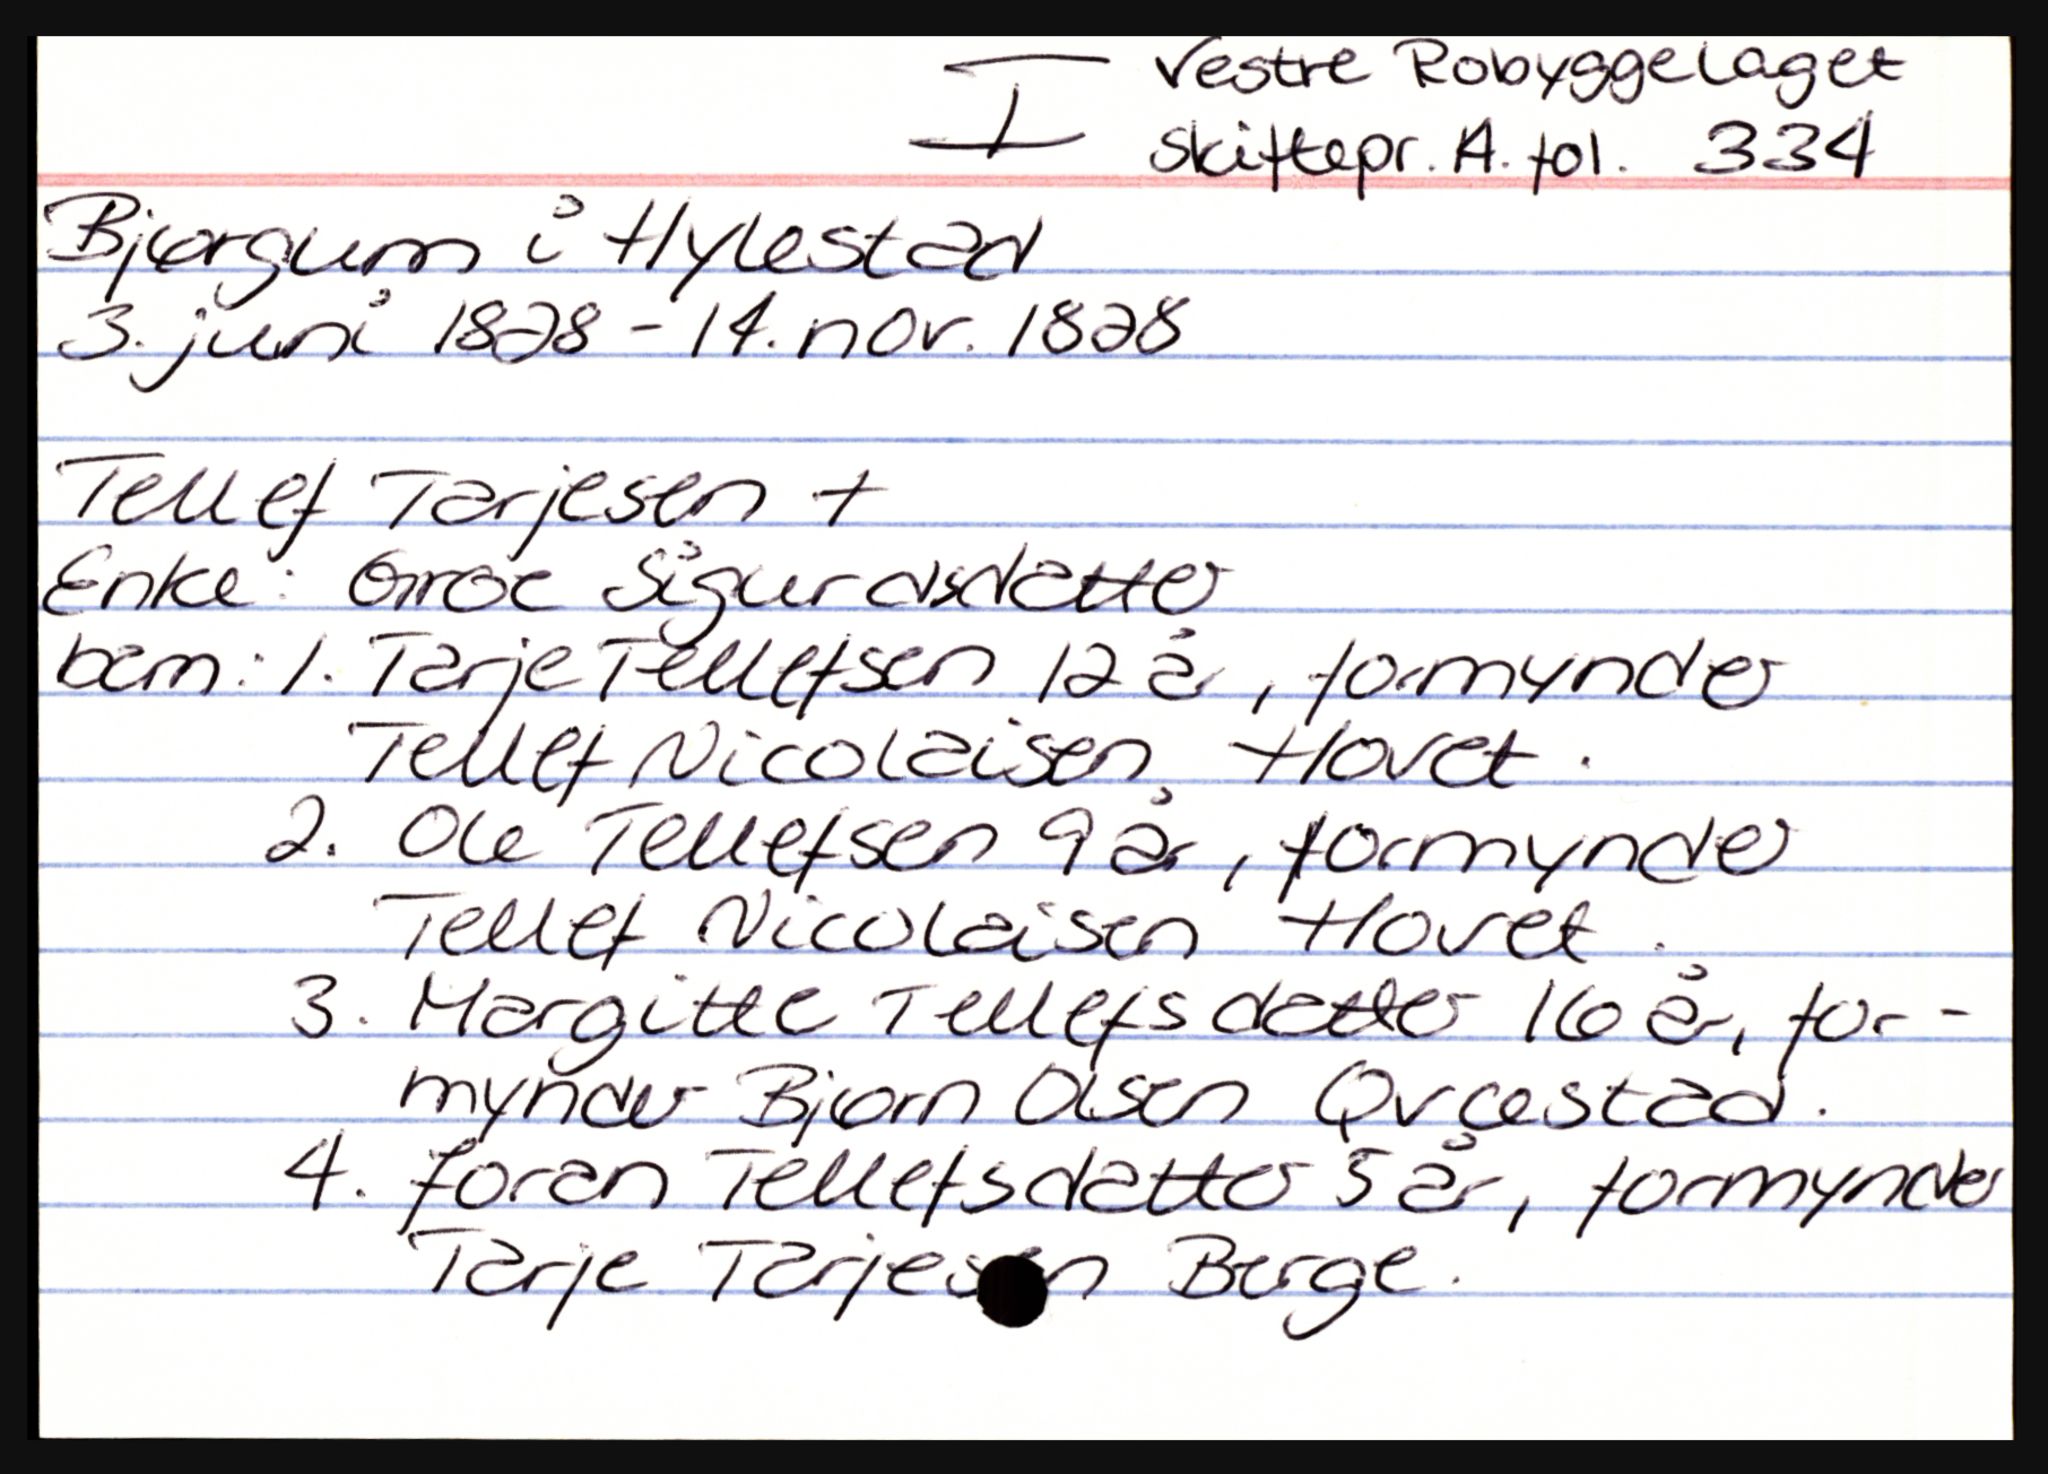 I Vestre Robyggelaget
skiftepr. A. fol. 334
Bjørgum i Hylestad
3. juni 1828 - 14. nov. 1828
Tellef Tarjesen +
Enke: Groe Sigurdsdatter
barn: 1. Tarje Tellefsen 12 år, formynder
Tellef Nicolaisen Hovet.
2. Ole Tellefsen 9 år, formynder
Tellef Nicolaisen Hovet.
3. Margitte Tellefsdatter 16 år, for-
mynder Bjørn Olsen Qvæstad.
4. Joran Tellefsdatter 5 år, formynder
Tarje Tarjesen Berge.